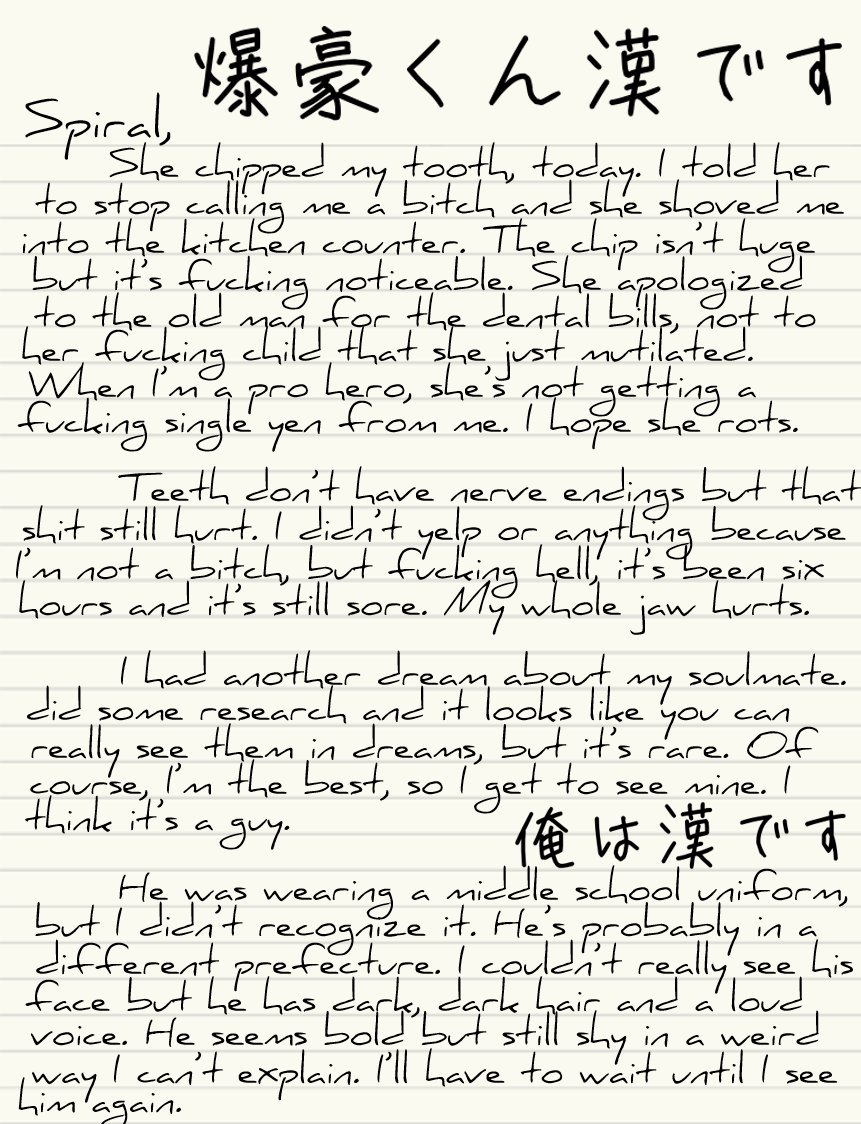 爆豪くん漢です
Spiral,
She chipped my tooth, today. I told her
to stop calling me a bitch and she shoved me
into the kitchen counter. The chip isn't huge
but it's fucking noticeable. She apologized
to the old man for the dental bills, not to
her fucking child that she just mutilated.
When I'm a pro hero, she's not getting a
fucking single yen from me. I hope she rots.
Teeth don't have nerve endings but that
shit still hurt. I didn't yelp or anything because
I'm not a bitch, but fucking hell, it's been six
hours and it's still sore. My whole jaw hurts.
I had another dream about my soulmate.
did some research and it looks like you can
really see them in dreams, but it's rare. Of
course, I'm the best, so I get to see mine. I
think it's a guy.
俺は漢です
He was wearing a middle school uniform,
but I didn't recognize it. He's probably in a
different prefecture. I couldn't really see his
face but he has dark, dark hair and a loud
voice. He seems bold but still shy in a weird
way I can't explain. I'll have to wait until I see
him again.